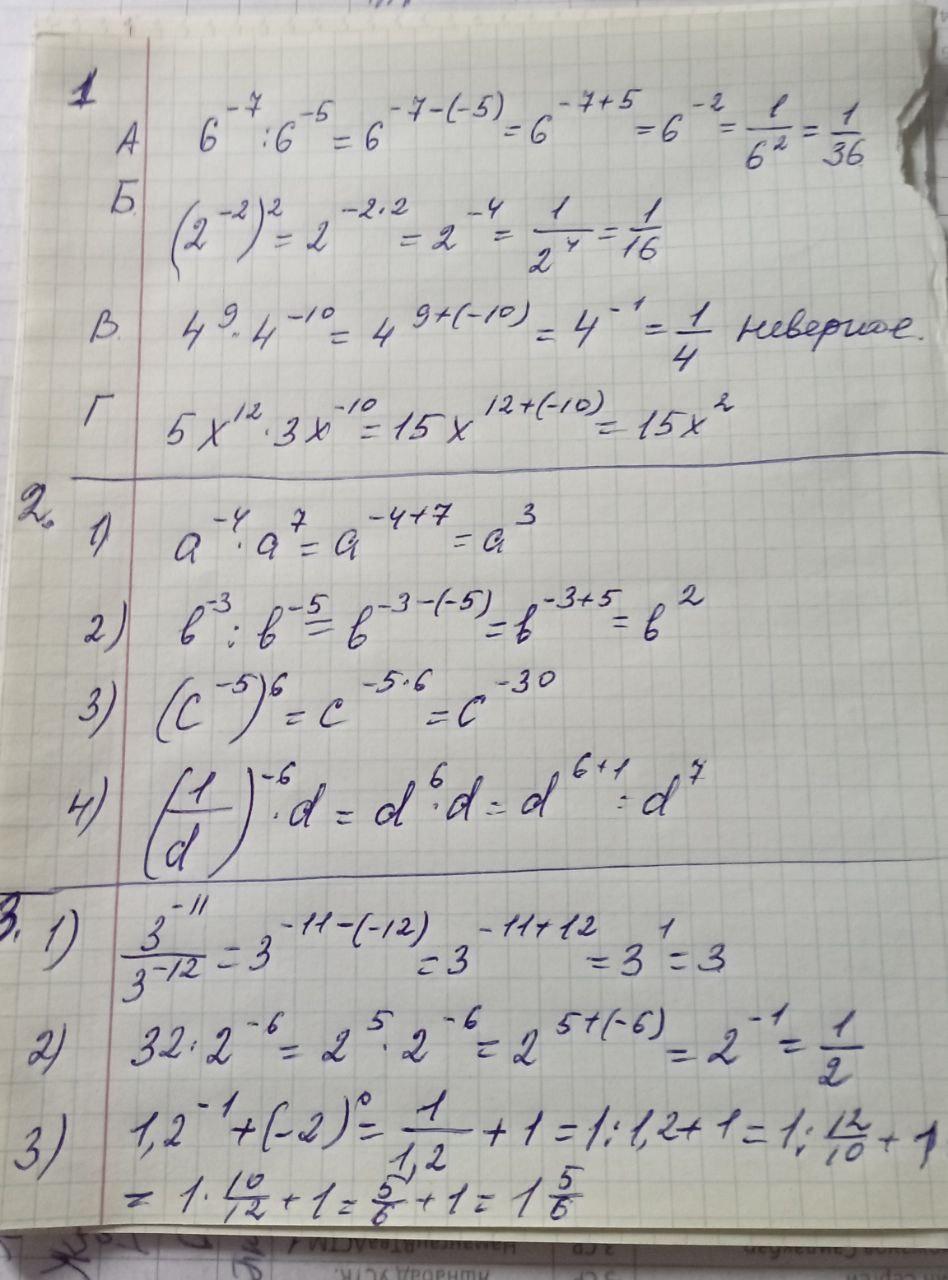 1
А 6⁻⁷ : 6⁻⁵ = 6⁻⁷⁻⁽⁻⁵⁾ = 6⁻⁷⁺⁵ = 6⁻² = 1/6² = 1/36
Б. (2⁻²)² = 2^(-2·2) = 2⁻⁴ = 1/2⁴ = 1/16
В. 4⁹ · 4⁻¹⁰ = 4⁹⁺⁽⁻¹⁰⁾ = 4⁻¹ = 1/4 неверное.
Г 5x¹² · 3x⁻¹⁰ = 15x¹²⁺⁽⁻¹⁰⁾ = 15x²
2.
1) a⁻⁴ · a⁷ = a⁻⁴⁺⁷ = a³
2) в⁻³ : в⁻⁵ = в⁻³⁻⁽⁻⁵⁾ = в⁻³⁺⁵ = в²
3) (c⁻⁵)⁶ = c^(-5·6) = c⁻³⁰
4) (1/d)⁻⁶ · d = d⁶ · d = d⁶⁺¹ = d⁷
3. 1) 3⁻¹¹/3⁻¹² = 3⁻¹¹⁻⁽⁻¹²⁾ = 3⁻¹¹⁺¹² = 3¹ = 3
2) 32 · 2⁻⁶ = 2⁵ · 2⁻⁶ = 2⁵⁺⁽⁻⁶⁾ = 2⁻¹ = 1/2
3) 1,2⁻¹ + (-2)⁰ = 1/1,2 + 1 = 1 : 1,2 + 1 = 1 : 12/10 + 1
= 1 · 10/12 + 1 = 5/6 + 1 = 1 5/6